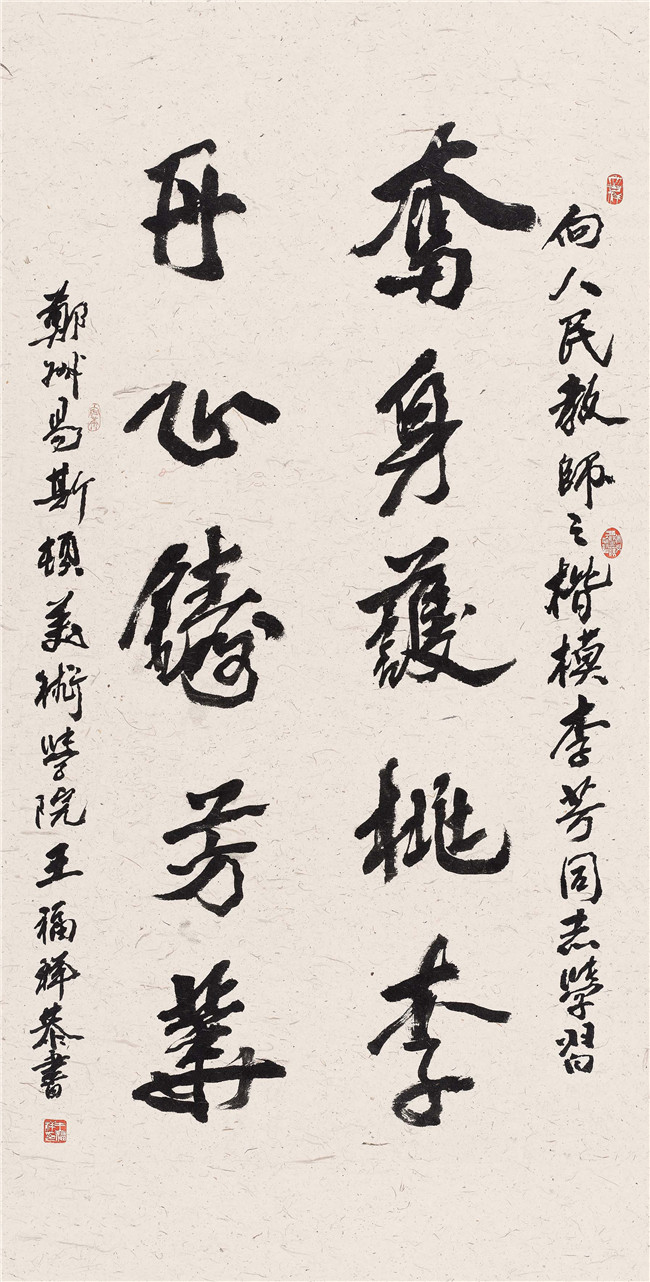 向人民教師之楷模李芳同志學習
奮身護桃李
丹心鑄芳華
鄭州易斯頓美術學院王福祥恭書